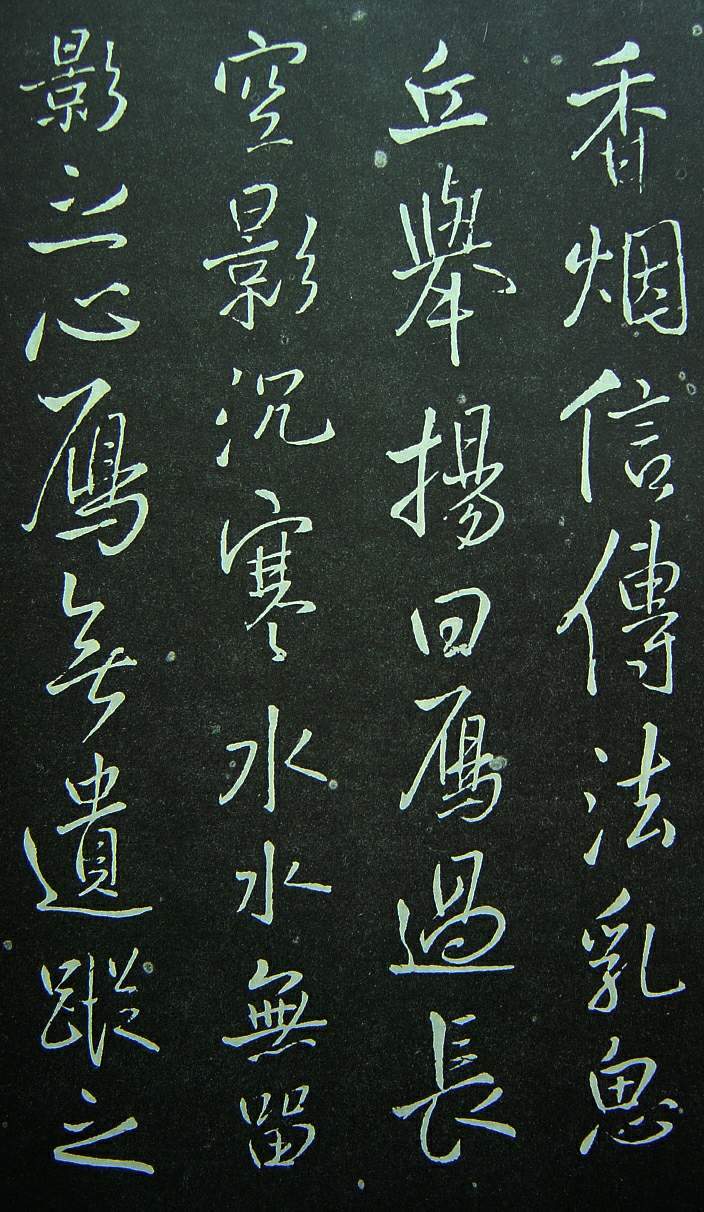 香烟信傳法乳
丘舉揚曰鴈過長
空影沉寒水水無留
影之心鴈無遺蹤之